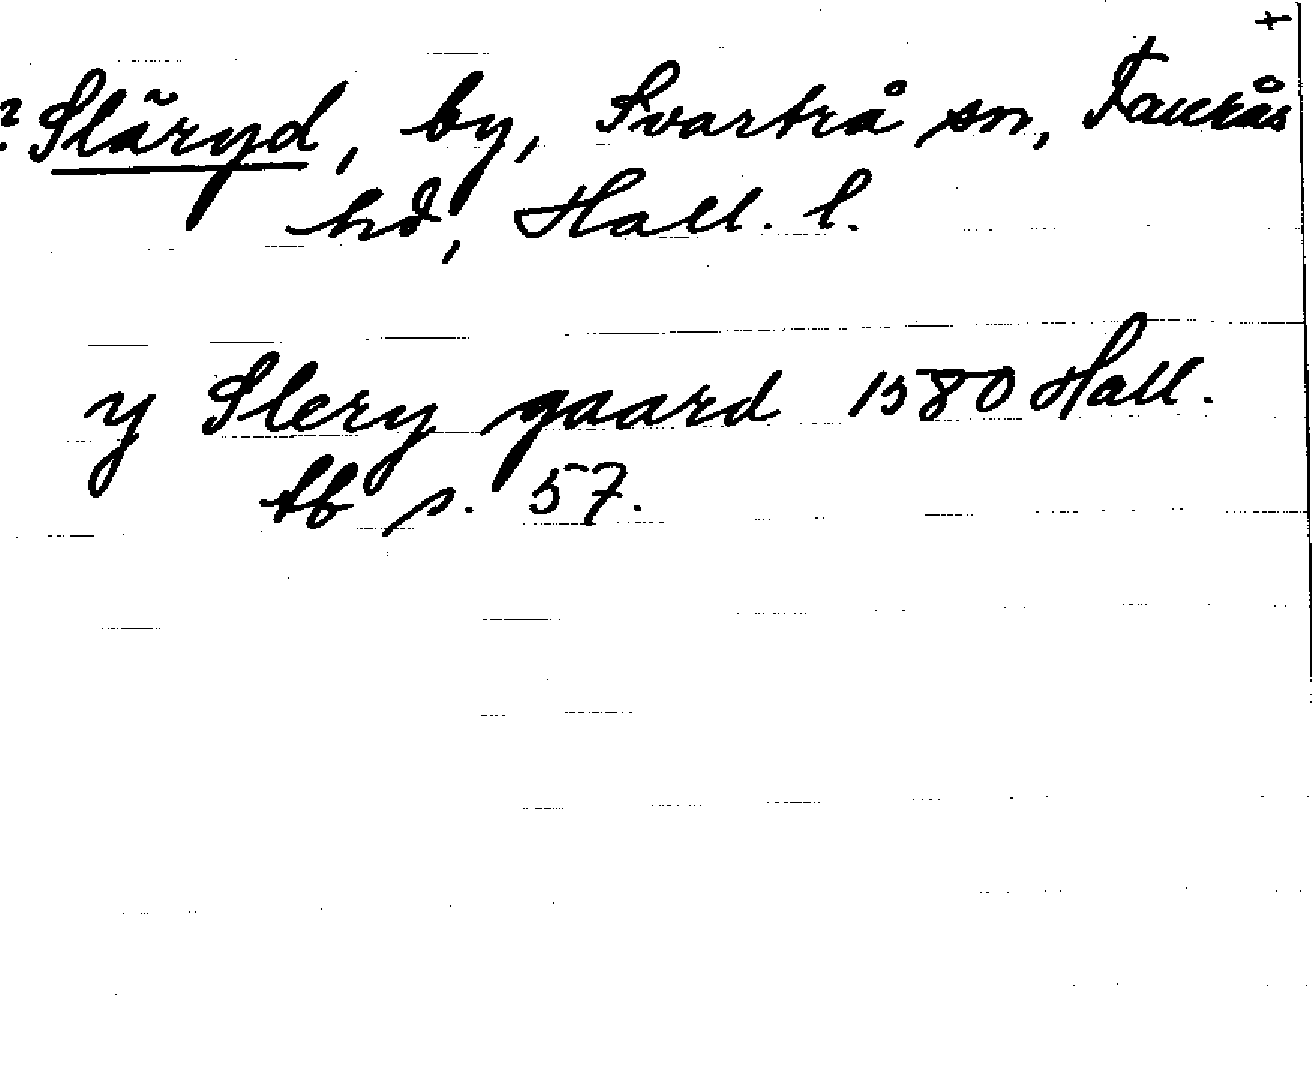 +
? Släryd, by, Svartrå sn, Faurås
hd, Hall. l.
y Slery gaard 1580 Hall.
tb s. 57.